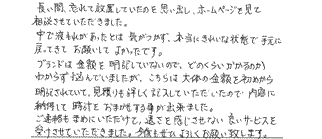 長い間、忘れて放置していたのを思い出し、ホームページを見て
相談させていただきました。
中で液もれがあったとは気がつかず、本当にきれいな状態で手元に
戻ってきてお願いしてよかったです。
ブランドは金額を明記していないので、どのくらいかかるのか
わからず悩んでいましたが、こちらは大体の金額を初めから
明記されていて、見積りも詳しく記入していただいたので内容に
納得して時計をおまかせする事が出来ました。
ご連絡もまめにいただけて、遠さを感じさせない良いサービスを
受けさせていただきました。今後もぜひよろしくお願い致します。